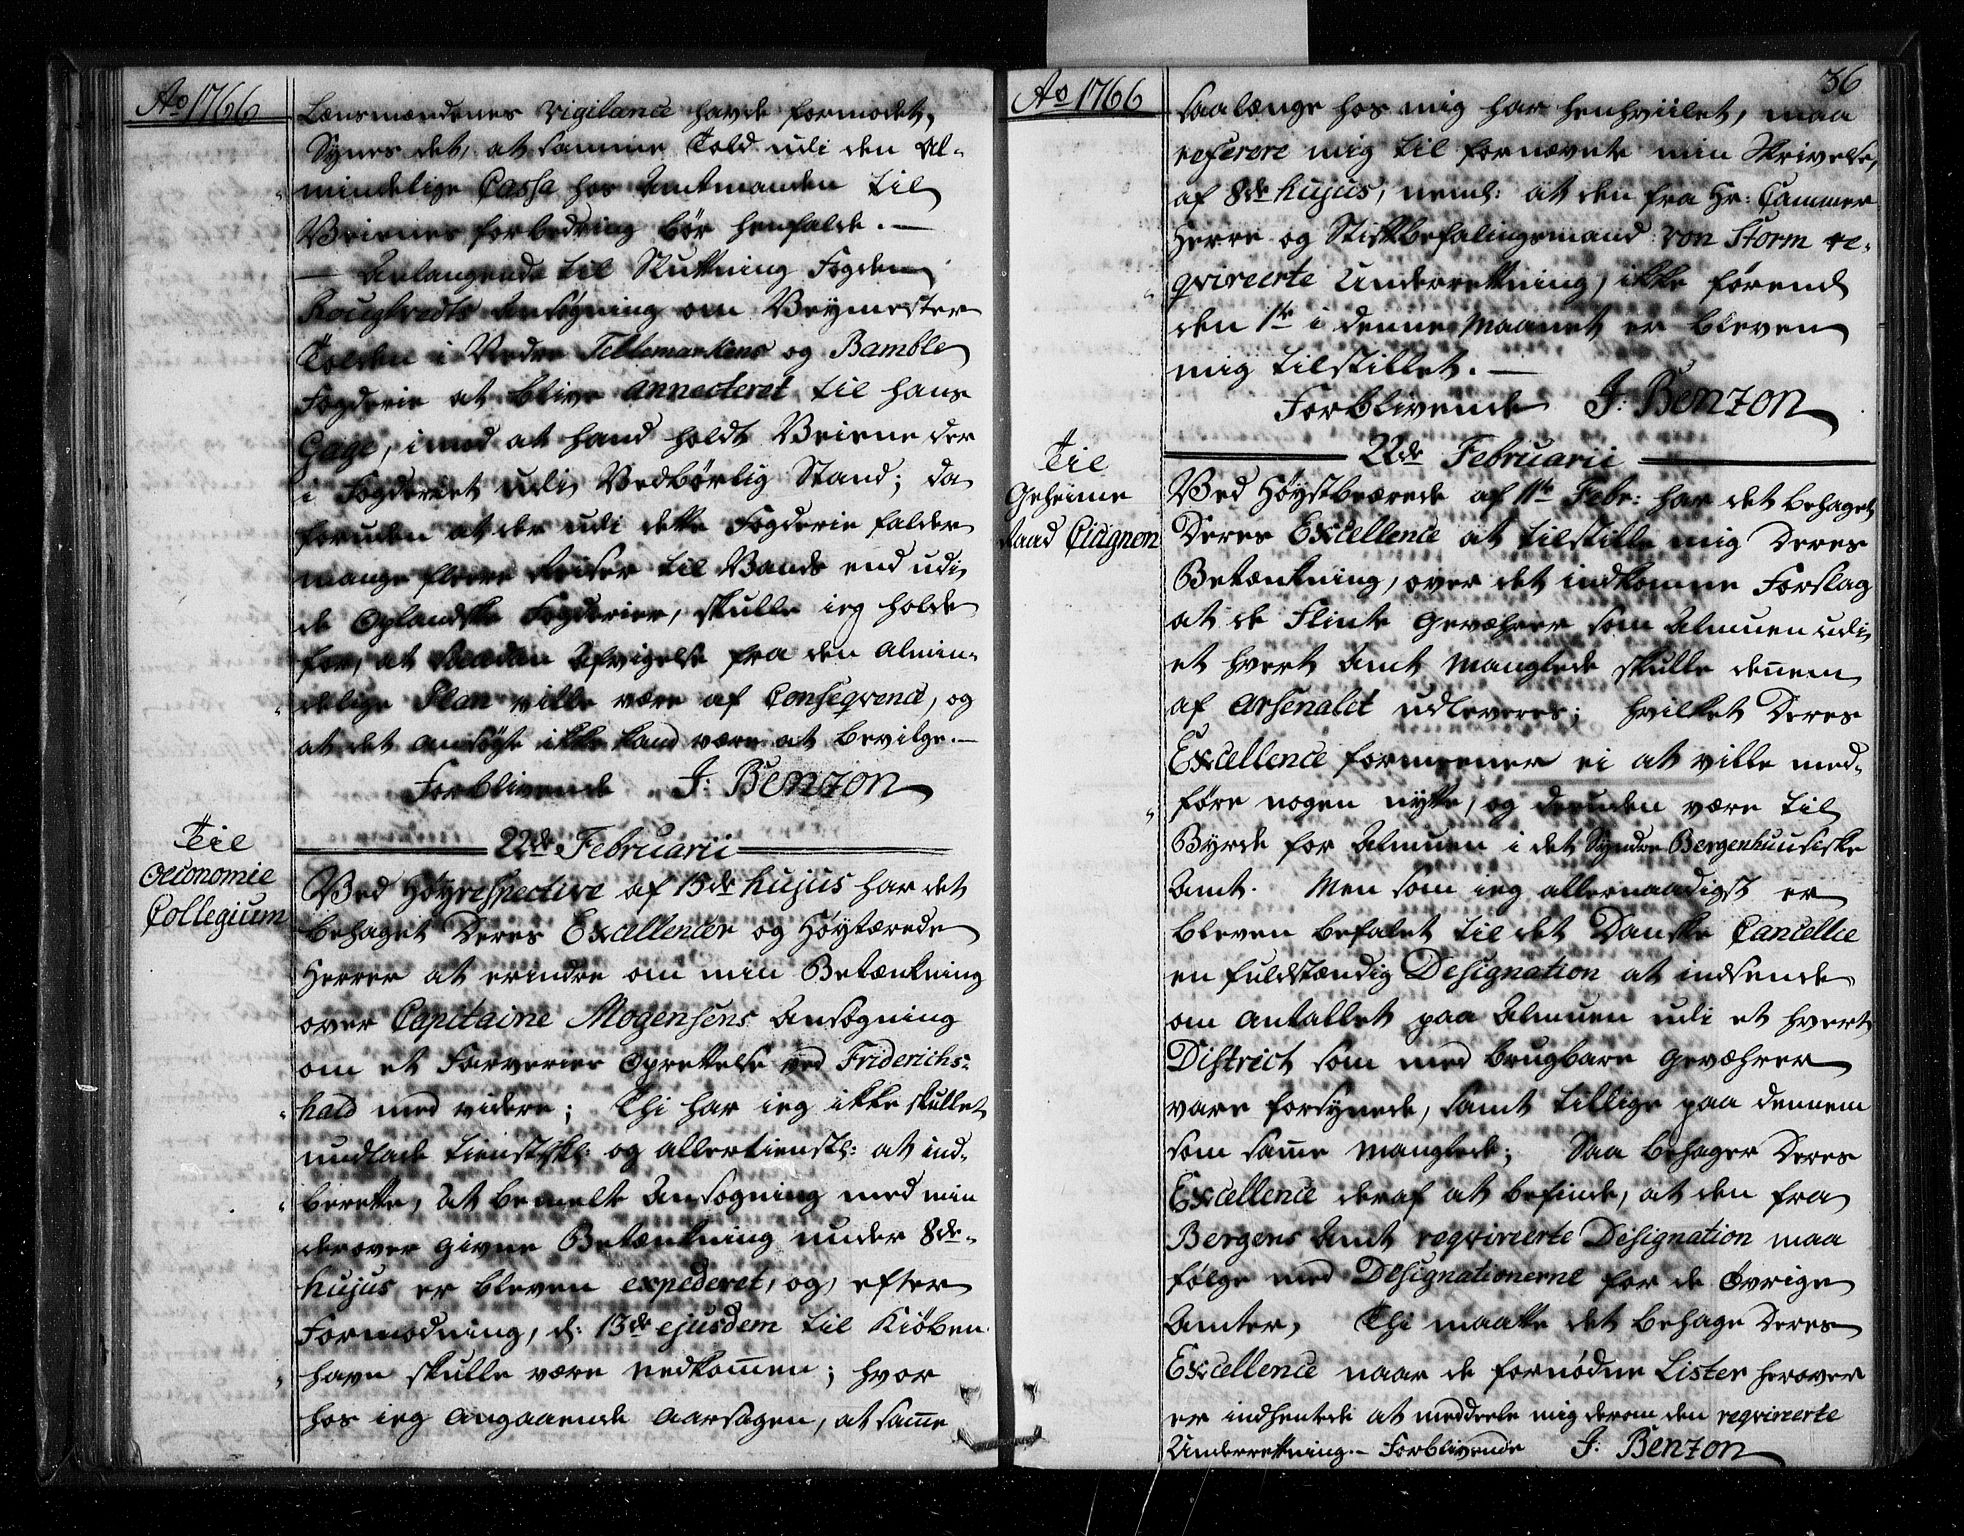 Ao 1766
Lænsmændenes vigilance havde formodet,
Synes det, at samme Told udi den Al-
mindelige Cassa hos Amtmanden til
Veienes forbedring bør henfalde. —
— Anlangende til Slutning Fogden
Ansøgning om Veymester
Tolden i Nedre Tellemarkens og Bamble
Fogderie at blive annecteret til hans
Gage, imod at hand holdt Veiene der
i Fogderiet udi Vedbørlig Stand; da
foruden at der udi dette Fogderie falder
mange fleere Reiser til Vands end udi
de Oplandske Fogderier, skulle ieg holde
for, at saadan Afvigelse fra den almin-
delige Plan ville være af Conseqvence, og
at det ansøgte ikke kand være at bevilge. —
Forblivende J: Benzon
22de Februarii
Til
Oeconomie
Collegium
Ved Høyrespective af 15de hujus har det
behaget Deres Excellencer og Høytærede
Herrer at erindre om min Betænkning
over Capitaine Mogensens Ansøgning
om et Farveries Oprettelse ved Friderichs-
hald med videre; Thi har ieg ikke skullet
undlade tienstskl: og allertienstl: at ind-
berette, at bemelte Ansøgning med min
derover givne Betænkning under 8de
hujus er bleven expederet, og, efter
Formodning, d: 13de ejusdem til Kiøben-
havn skulle være nedkommen; hvor
hos ieg angaaende Aarsagen, at samme
Ao 1766
36
saalænge hos mig har henhviilet, maa
referere mig til fornævnte min Skrivelse,
af 8de hujus, neml: at den fra Hr: Cammer
Herre og Stiftbefalingsmand von Storm re-
qvireerte Underretning, ikke førend
den 1te i denne Maanet er bleven
mig tilstillet. —
Forblivende J: Benzon
22de Februarii
Til
Geheime
Raad Cicignon
Ved Høystbeærede af 11te Febr: har det behaget
Deres Excellence at tilstille mig Deres
Betænkning, over det indkomne Forslag
at de Flinte Geværer som Almuen udi
et hvert Amt manglede skulle dennem
af Arsenalet udleveres; hvilket Deres
Excellence formeener ei at ville med-
føre nogen nytte, og desuden være til
Byrde for Almuen i det Syndre Bergenhuusiske
Amt. Men som ieg allernaadigst er
bleven befalet til det Danske Cancellie
en fuldstændig Designation at indsende
om Antallet paa Almuen udi et hvert
District som med brugbare Gevæhrer
vare forsynede, samt tillige paa dennem
som samme manglede; Saa behager Deres
Excellence deraf at befinde, at den fra
Bergens Amt reqvireerte Designation maa
følge med Designationerne for de Øvrige
Amter, Thi maatte det behage Deres
Excellence naar de fornødne Lister herover
er indhentede at meddeele mig derom den reqvireerte
Underretning. — Forblivende J: Benzon